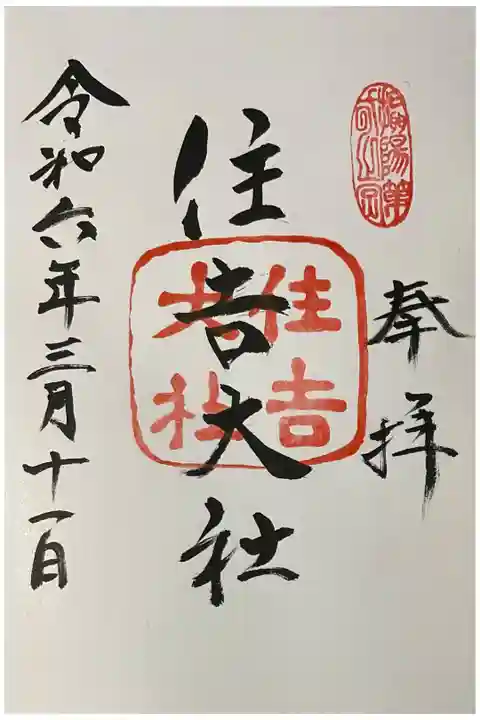 奉拝
住吉大社
住吉大社
令和六年三月十一日